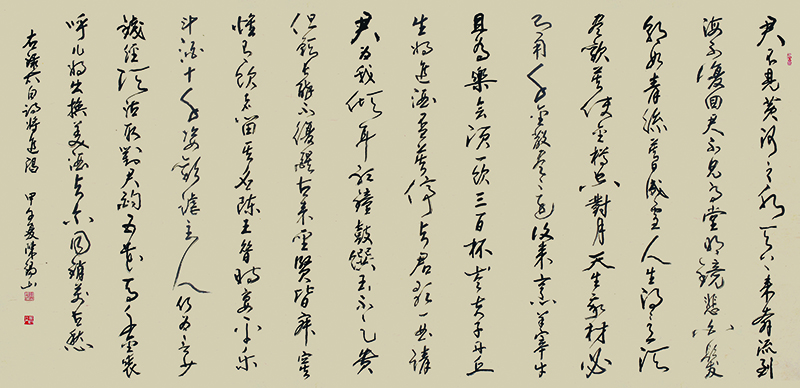 君不見黃河之水天上來奔流到
海不復回君不見高堂明鏡悲白髮
朝如青絲暮成雪人生得意須
盡歡莫使金樽空對月天生我材必
有用千金散盡還復來烹羊宰牛
且為樂會須一飲三百杯岑夫子丹丘
生將進酒君莫停與君歌一曲請
君為我傾耳聽鐘鼓饌玉不足貴
但願長醉不復醒古來聖賢皆寂寞
惟有飲者留其名陳王昔時宴平樂
斗酒十千恣歡謔主人何為言少
錢徑須沽取對君酌五花馬千金裘
呼兒將出換美酒與爾同銷萬古愁
右錄太白詩將進酒 甲午夏